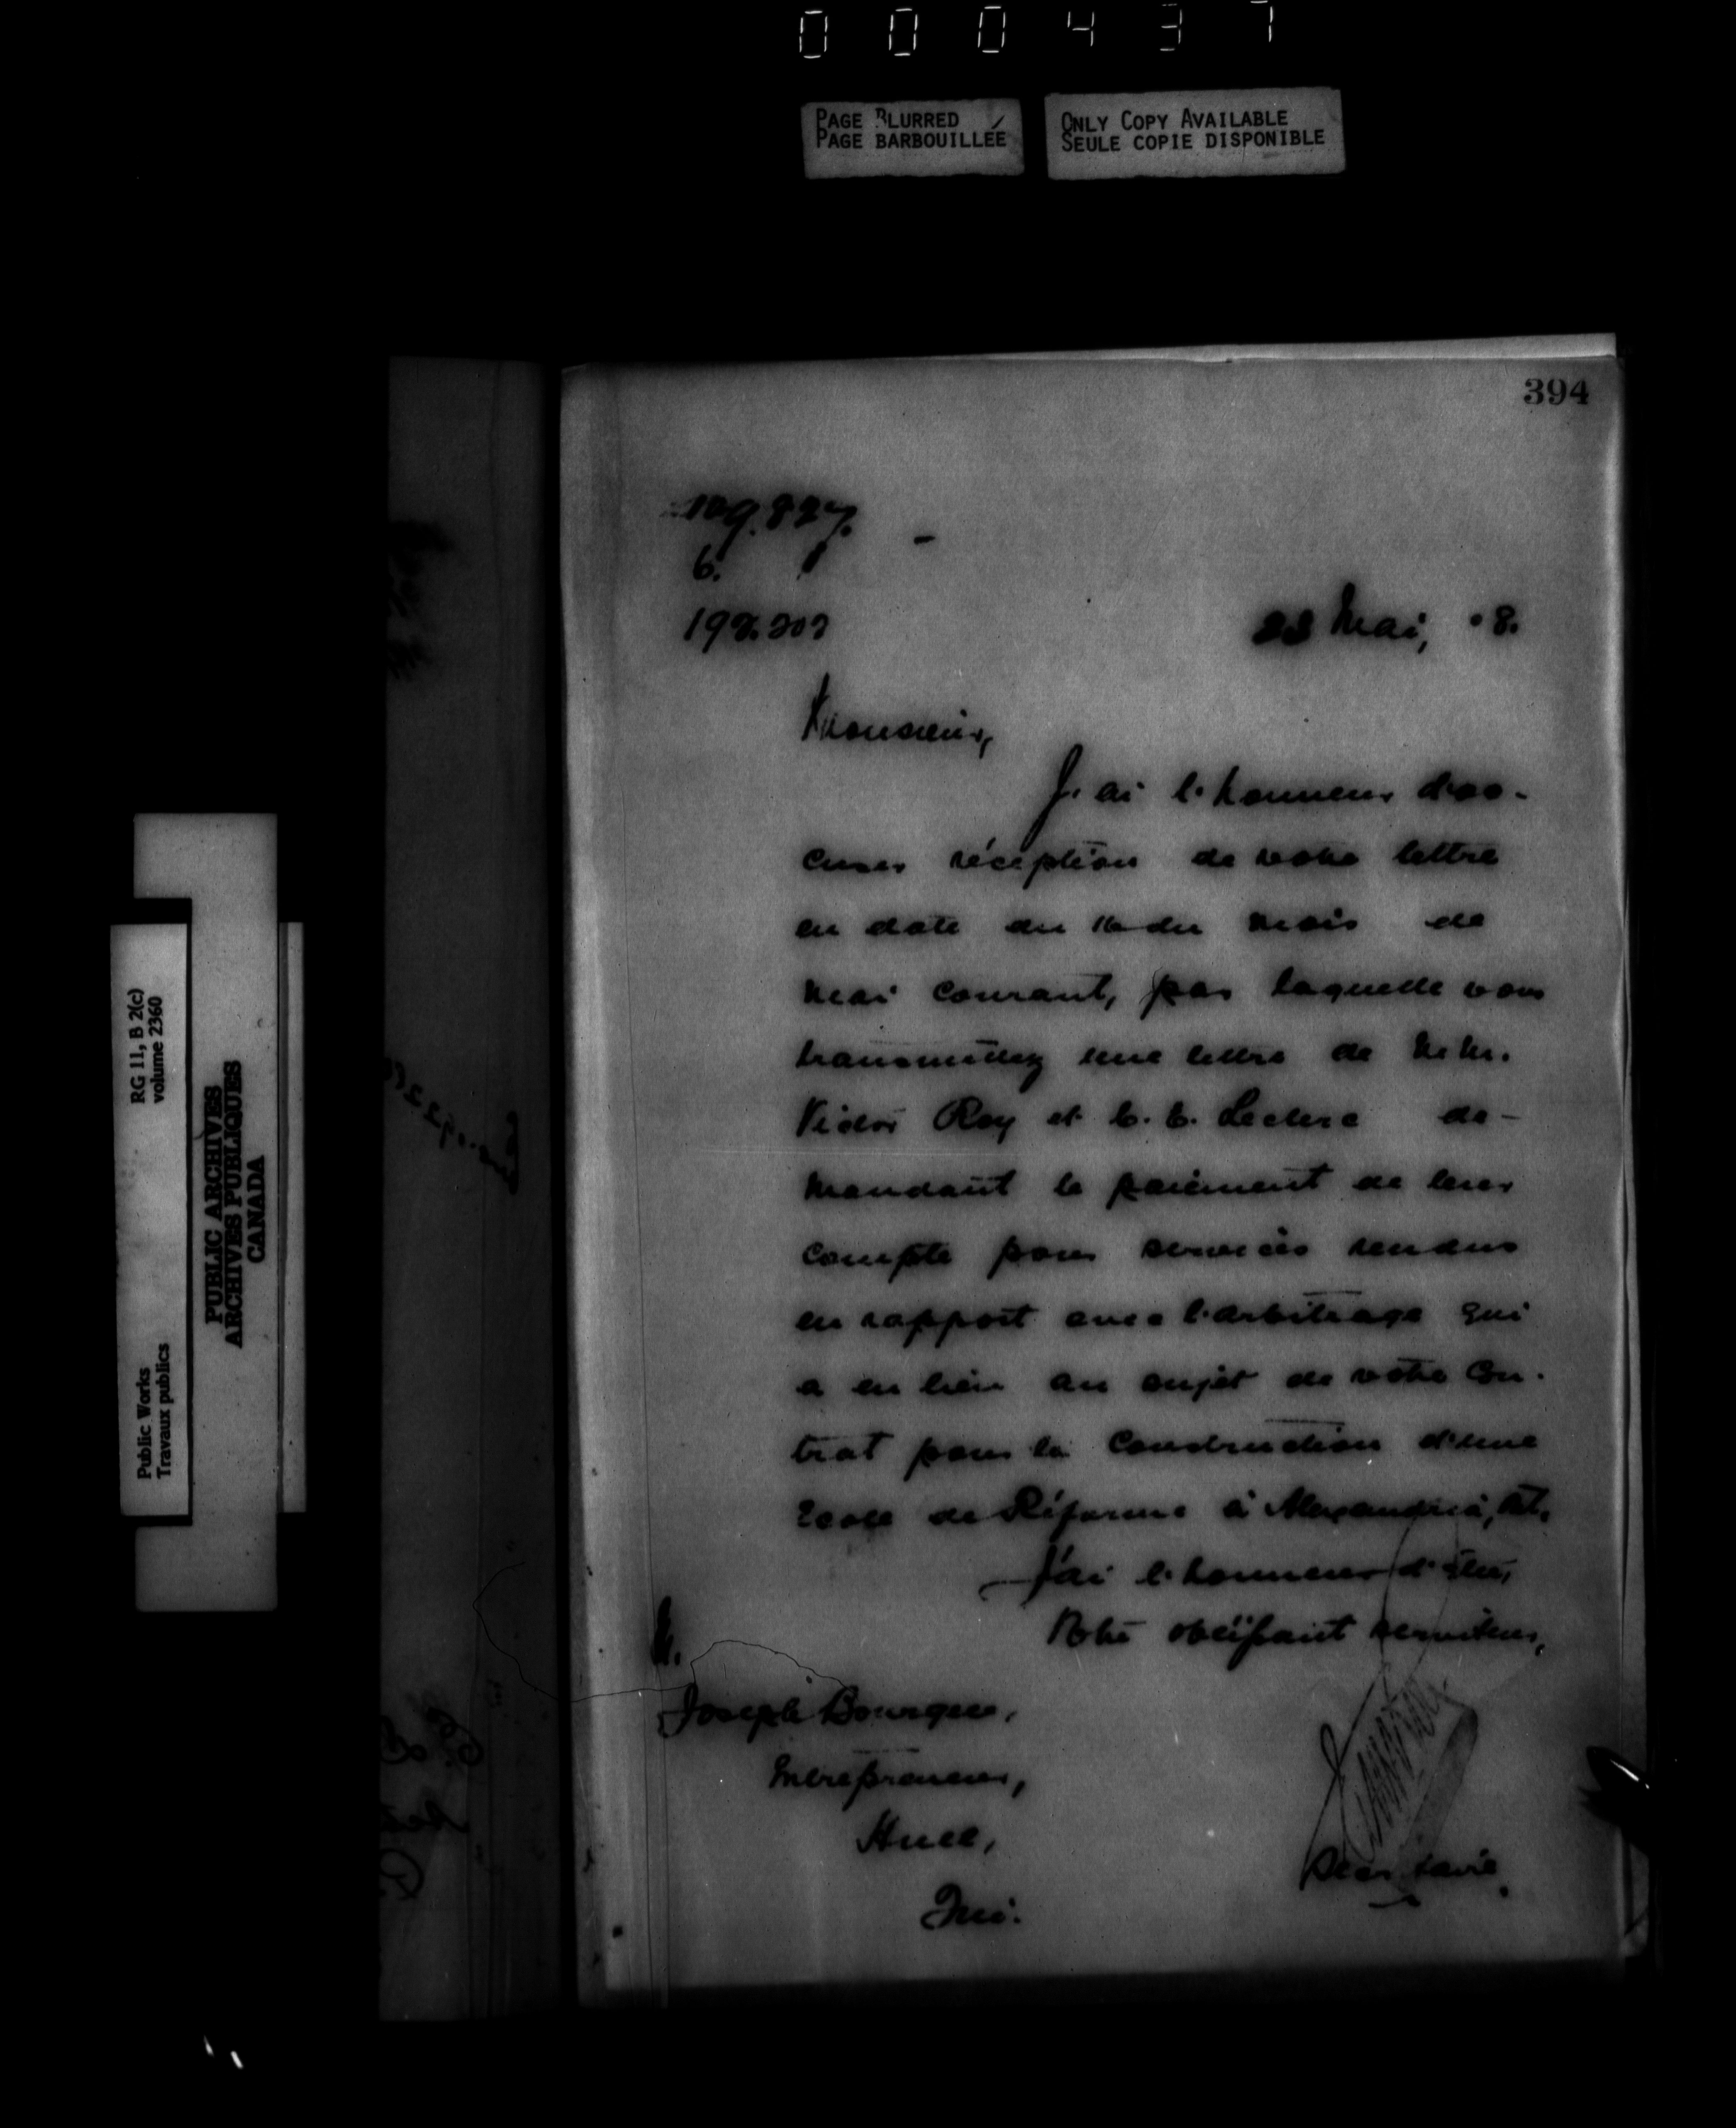 000437
PAGE BLURRED
PAGE BARBOUILLÉE
ONLY COPY AVAILABLE
SEULE COPIE DISPONIBLE
394
6.
Mai, 8.
Monsieur,
J'ai l'honneur d'ac-
cuser réception de votre lettre
en date du 16 du mois de
Mai courant, par laquelle vous
transmettez une lettre de MM.
Victor Roy et C. E. Leclerc de-
mandant le paiement de leur
compte pour services rendus
en rapport avec l'arbitrage qui
a eu lieu au sujet de votre con-
trat pour la construction d'une
Ecole de Réforme à Alexandria, Ont.
J'ai l'honneur d'être,
Votre obéissant serviteur,
M.
Joseph Bourque,
Entrepreneur,
Hull,
Qué.
Secrétaire.
RG 11, B 2(c)
volume 2360
Public Works
Travaux publics
PUBLIC ARCHIVES
ARCHIVES PUBLIQUES
CANADA